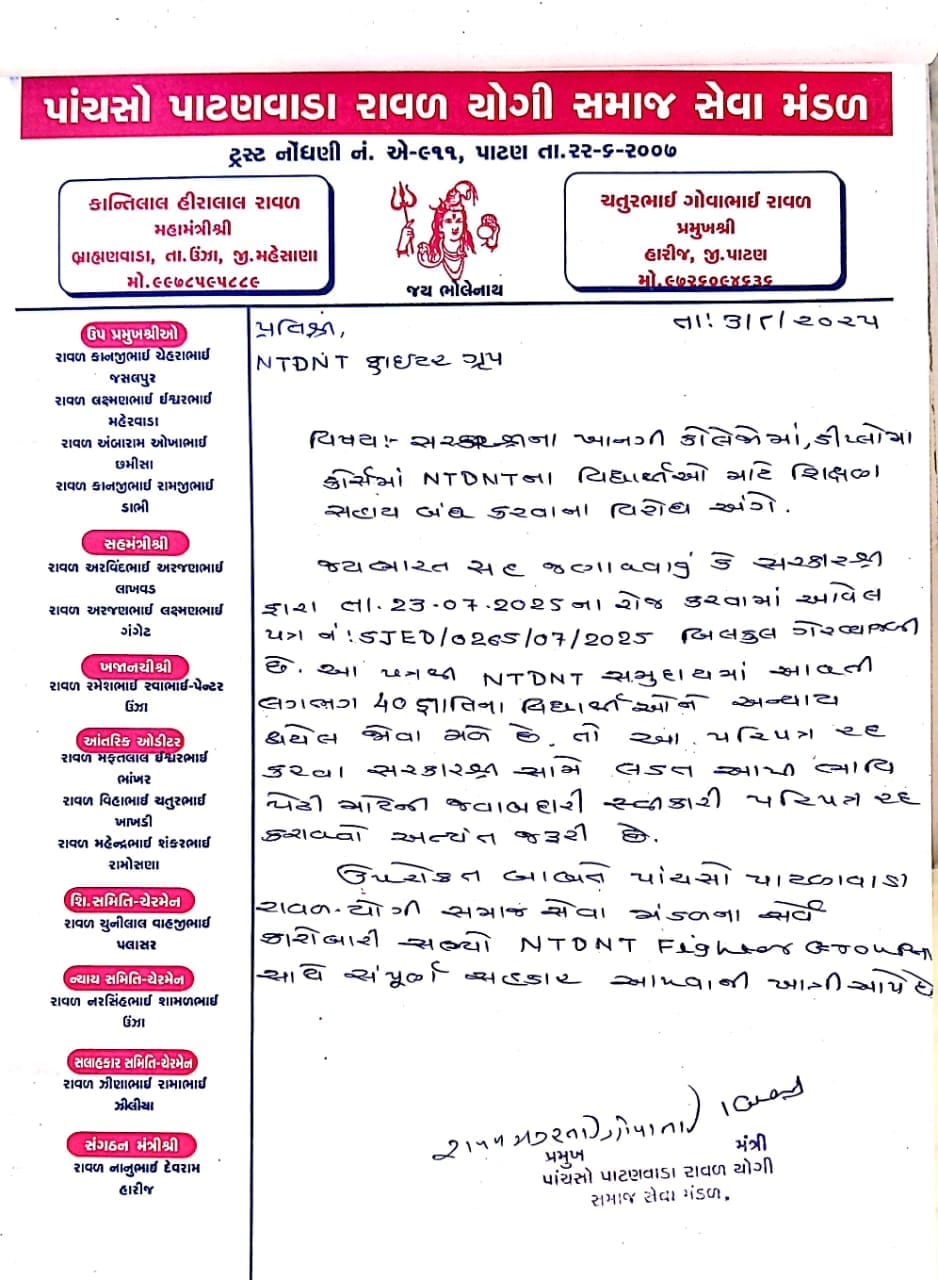 પાંચસો પાટણવાડા રાવળ યોગી સમાજ સેવા મંડળ
ટ્રસ્ટ નોંધણી નં. એ-૯૧૧, પાટણ તા.૨૨-૬-૨૦૦૭
કાન્તિલાલ હીરાલાલ રાવળ
મહામંત્રીશ્રી
બ્રાહ્મણવાડા, તા.ઉંઝા, જી.મહેસાણા
મો.૯૯૭૮૫૯૫૮૮૯
જય ભોલેનાથ
ચતુરભાઈ ગોવાભાઈ રાવળ
પ્રમુખશ્રી
હારીજ, જી.પાટણ
મો.૯૭૨૬૦૯૪૬૩૬
ઉપ પ્રમુખશ્રીઓ
રાવળ કાનજીભાઈ ચેહરાભાઈ
જસલપુર
રાવળ લક્ષ્મણભાઈ ઈશ્વરભાઈ
મહેરવાડા
રાવળ અંબારામ ઓખાભાઈ
છમીસા
રાવળ કાનજીભાઈ રામજીભાઈ
ડાભી
સહમંત્રીશ્રી
રાવળ અરવિંદભાઈ અરજણભાઈ
લાખવડ
રાવળ અરજણભાઈ લક્ષ્મણભાઈ
ગંગેટ
ખજાનચીશ્રી
રાવળ રમેશભાઈ રવાભાઈ-પેન્ટર
ઉંઝા
આંતરિક ઓડીટર
રાવળ મફતલાલ ઈશ્વરભાઈ
ભાંખર
રાવળ વિહાભાઈ ચતુરભાઈ
ખાખડી
રાવળ મહેન્દ્રભાઈ શંકરભાઈ
રામોસણા
શિ.સમિતિ-ચેરમેન
રાવળ ચુનીલાલ વાહજીભાઈ
પલાસર
ન્યાય સમિતિ-ચેરમેન
રાવળ નરસિંહભાઈ શામળભાઈ
ઉંઝા
સલાહકાર સમિતિ-ચેરમેન
રાવળ ઝીણાભાઈ રામાભાઈ
ઝીલીયા
સંગઠન મંત્રીશ્રી
રાવળ નાનુભાઈ દેવરામ
હારીજ
તા: ૩/૮/૨૦૨૫
પ્રતિશ્રી,
NTDNT ફાઇટર ગ્રુપ
વિષય:- સરકારશ્રીના ખાનગી કોલેજોમાં, ડીપ્લોમા
કોર્સમાં NTDNTના વિદ્યાર્થીઓ માટે શિક્ષણ
સહાય બંધ કરવાના વિરોધ અંગે.
જયભારત સહ જણાવવાનું કે સરકારશ્રી
દ્વારા તા. 23.07.2025ના રોજ કરવામાં આવેલ
પત્ર નં: SJED/0265/07/2025 બિલકુલ ગેરવ્યાજબી
છે. આ પત્રથી NTDNT સમુદાયમાં આવતી
લગભગ 40 જ્ઞાતિના વિદ્યાર્થીઓને અન્યાય
થયેલ જોવા મળે છે. તો આ પરિપત્ર રદ
કરવા સરકારશ્રી સામે લડત આપી ભાવિ
પેઢી માટેની જવાબદારી સ્વીકારી પરિપત્ર રદ
કરાવવો અત્યંત જરૂરી છે.
ઉપરોક્ત બાબતે પાંચસો પાટણવાડા
રાવળ-યોગી સમાજ સેવા મંડળના સર્વે
કારોબારી સભ્યો NTDNT Fighter Groupના
સાથે સંપૂર્ણ સહકાર આપવાની ખાત્રી આપે છે
પ્રમુખ મંત્રી
પાંચસો પાટણવાડા રાવળ યોગી
સમાજ સેવા મંડળ.